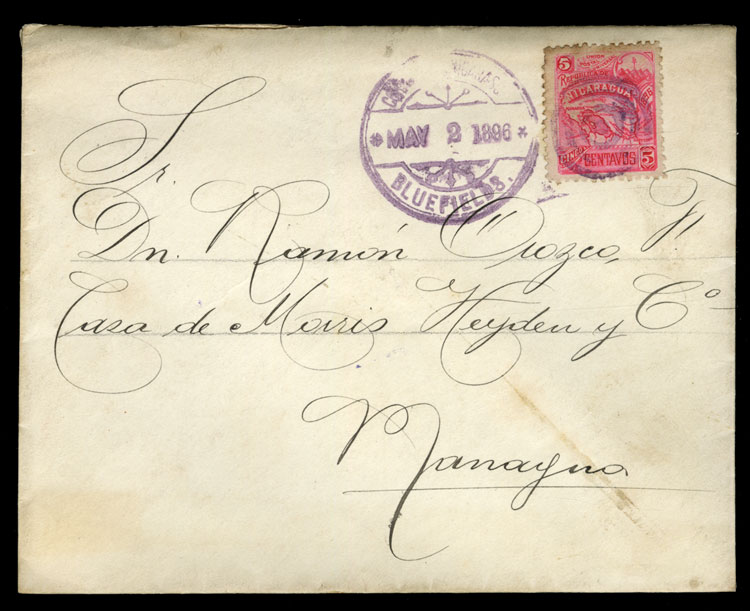 BLUEFIELDS.
* MAY 2 1896 *
5
REPUBLICA DE
NICARAGUA
CINCO CENTAVOS 5
Sr.
Dn. Ramón Orozco, P.
Casa de Morris Heyden y Cº
Managua